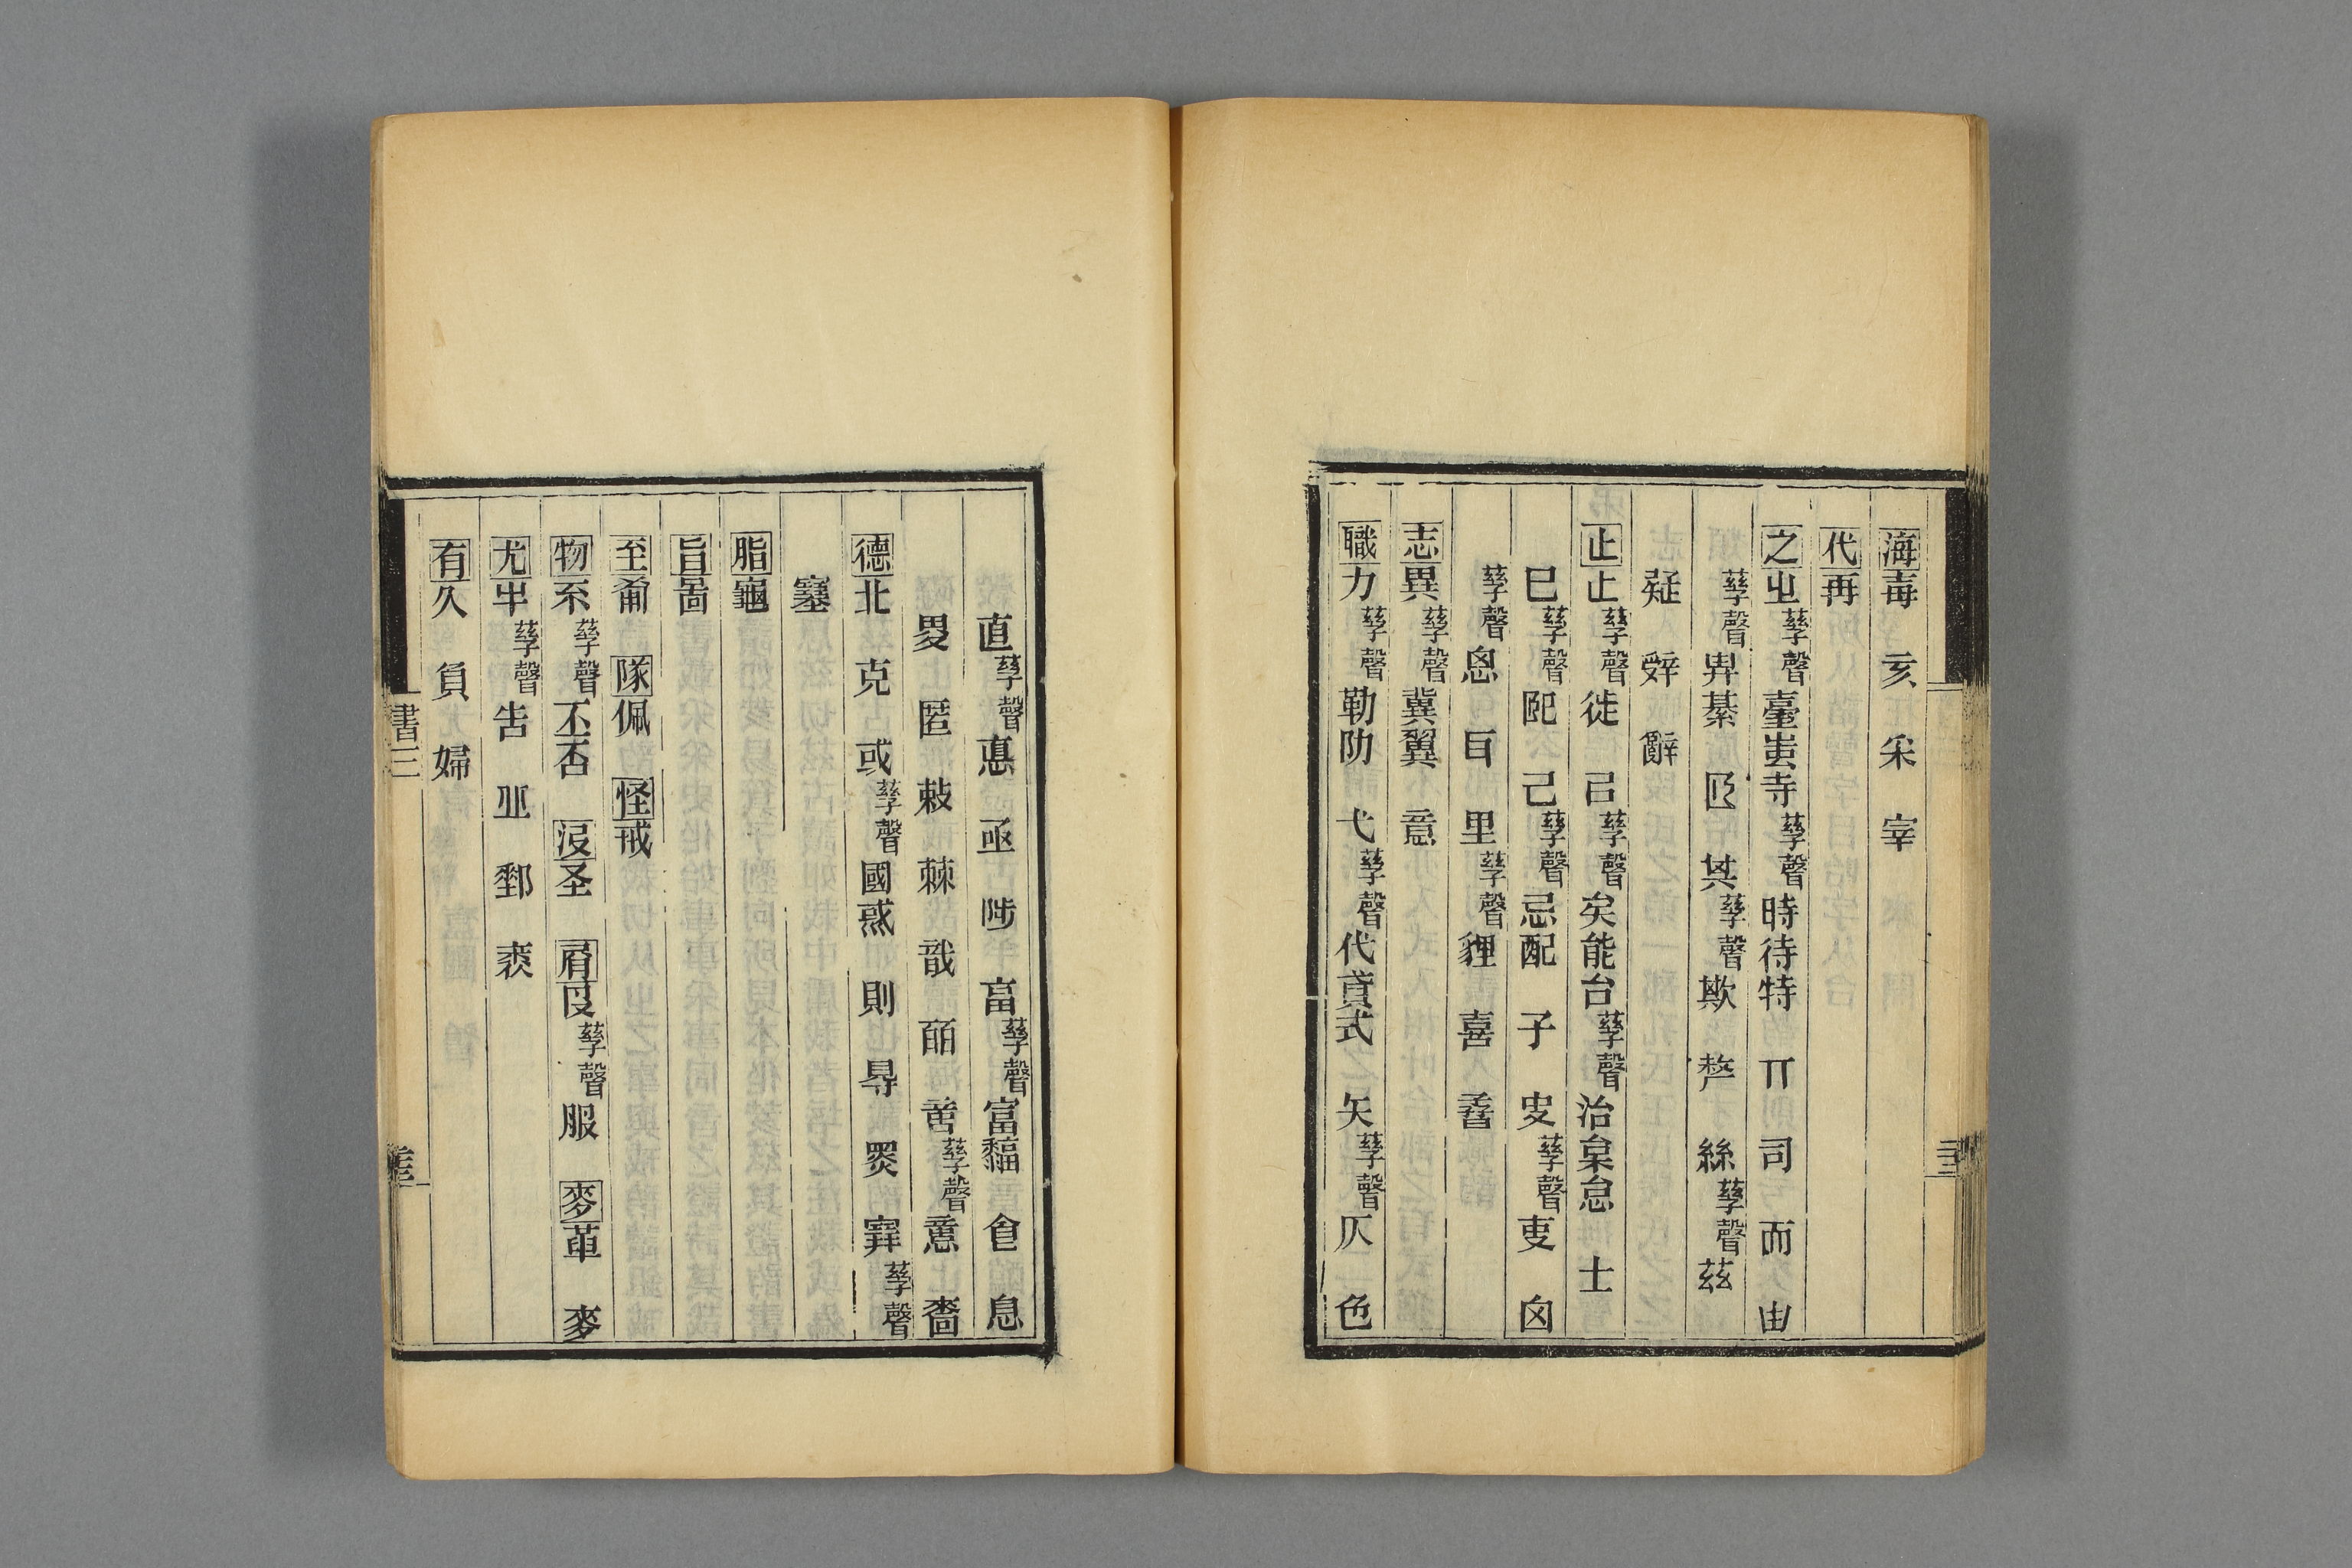 海毒 亥 采 宰
代再
之㞢孳聲臺蚩寺孳聲時待特 丌 司 而 甾
孳聲畁綦 𦣞 其孳聲欺 𠩺 絲孳聲兹
疑 辤 辭
止止孳聲徙 㠯孳聲矣能台孳聲治枲怠 士
巳孳聲配 己孳聲忌配 子 史孳聲吏 囟
孳聲恖 耳 里孳聲貍 喜 䎣
志異孳聲冀翼 意
職力孳聲勒阞 弋孳聲代貣式 矢孳聲仄 色
直孳聲悳 亟 陟 畐孳聲富䵗 食 息
畟 匿 敕 棘 戠 皕 啻孳聲意 嗇
德北 克 或孳聲國惑 則 㝵 䙴 𡫳孳聲
塞
脂龜
旨啚
至𤰈 隊佩 怪戒
物不孳聲丕否 沒圣 屑𠬝孳聲服 麥革 麥
尤牛孳聲告 丠 郵 裘
有久 負 婦
書三